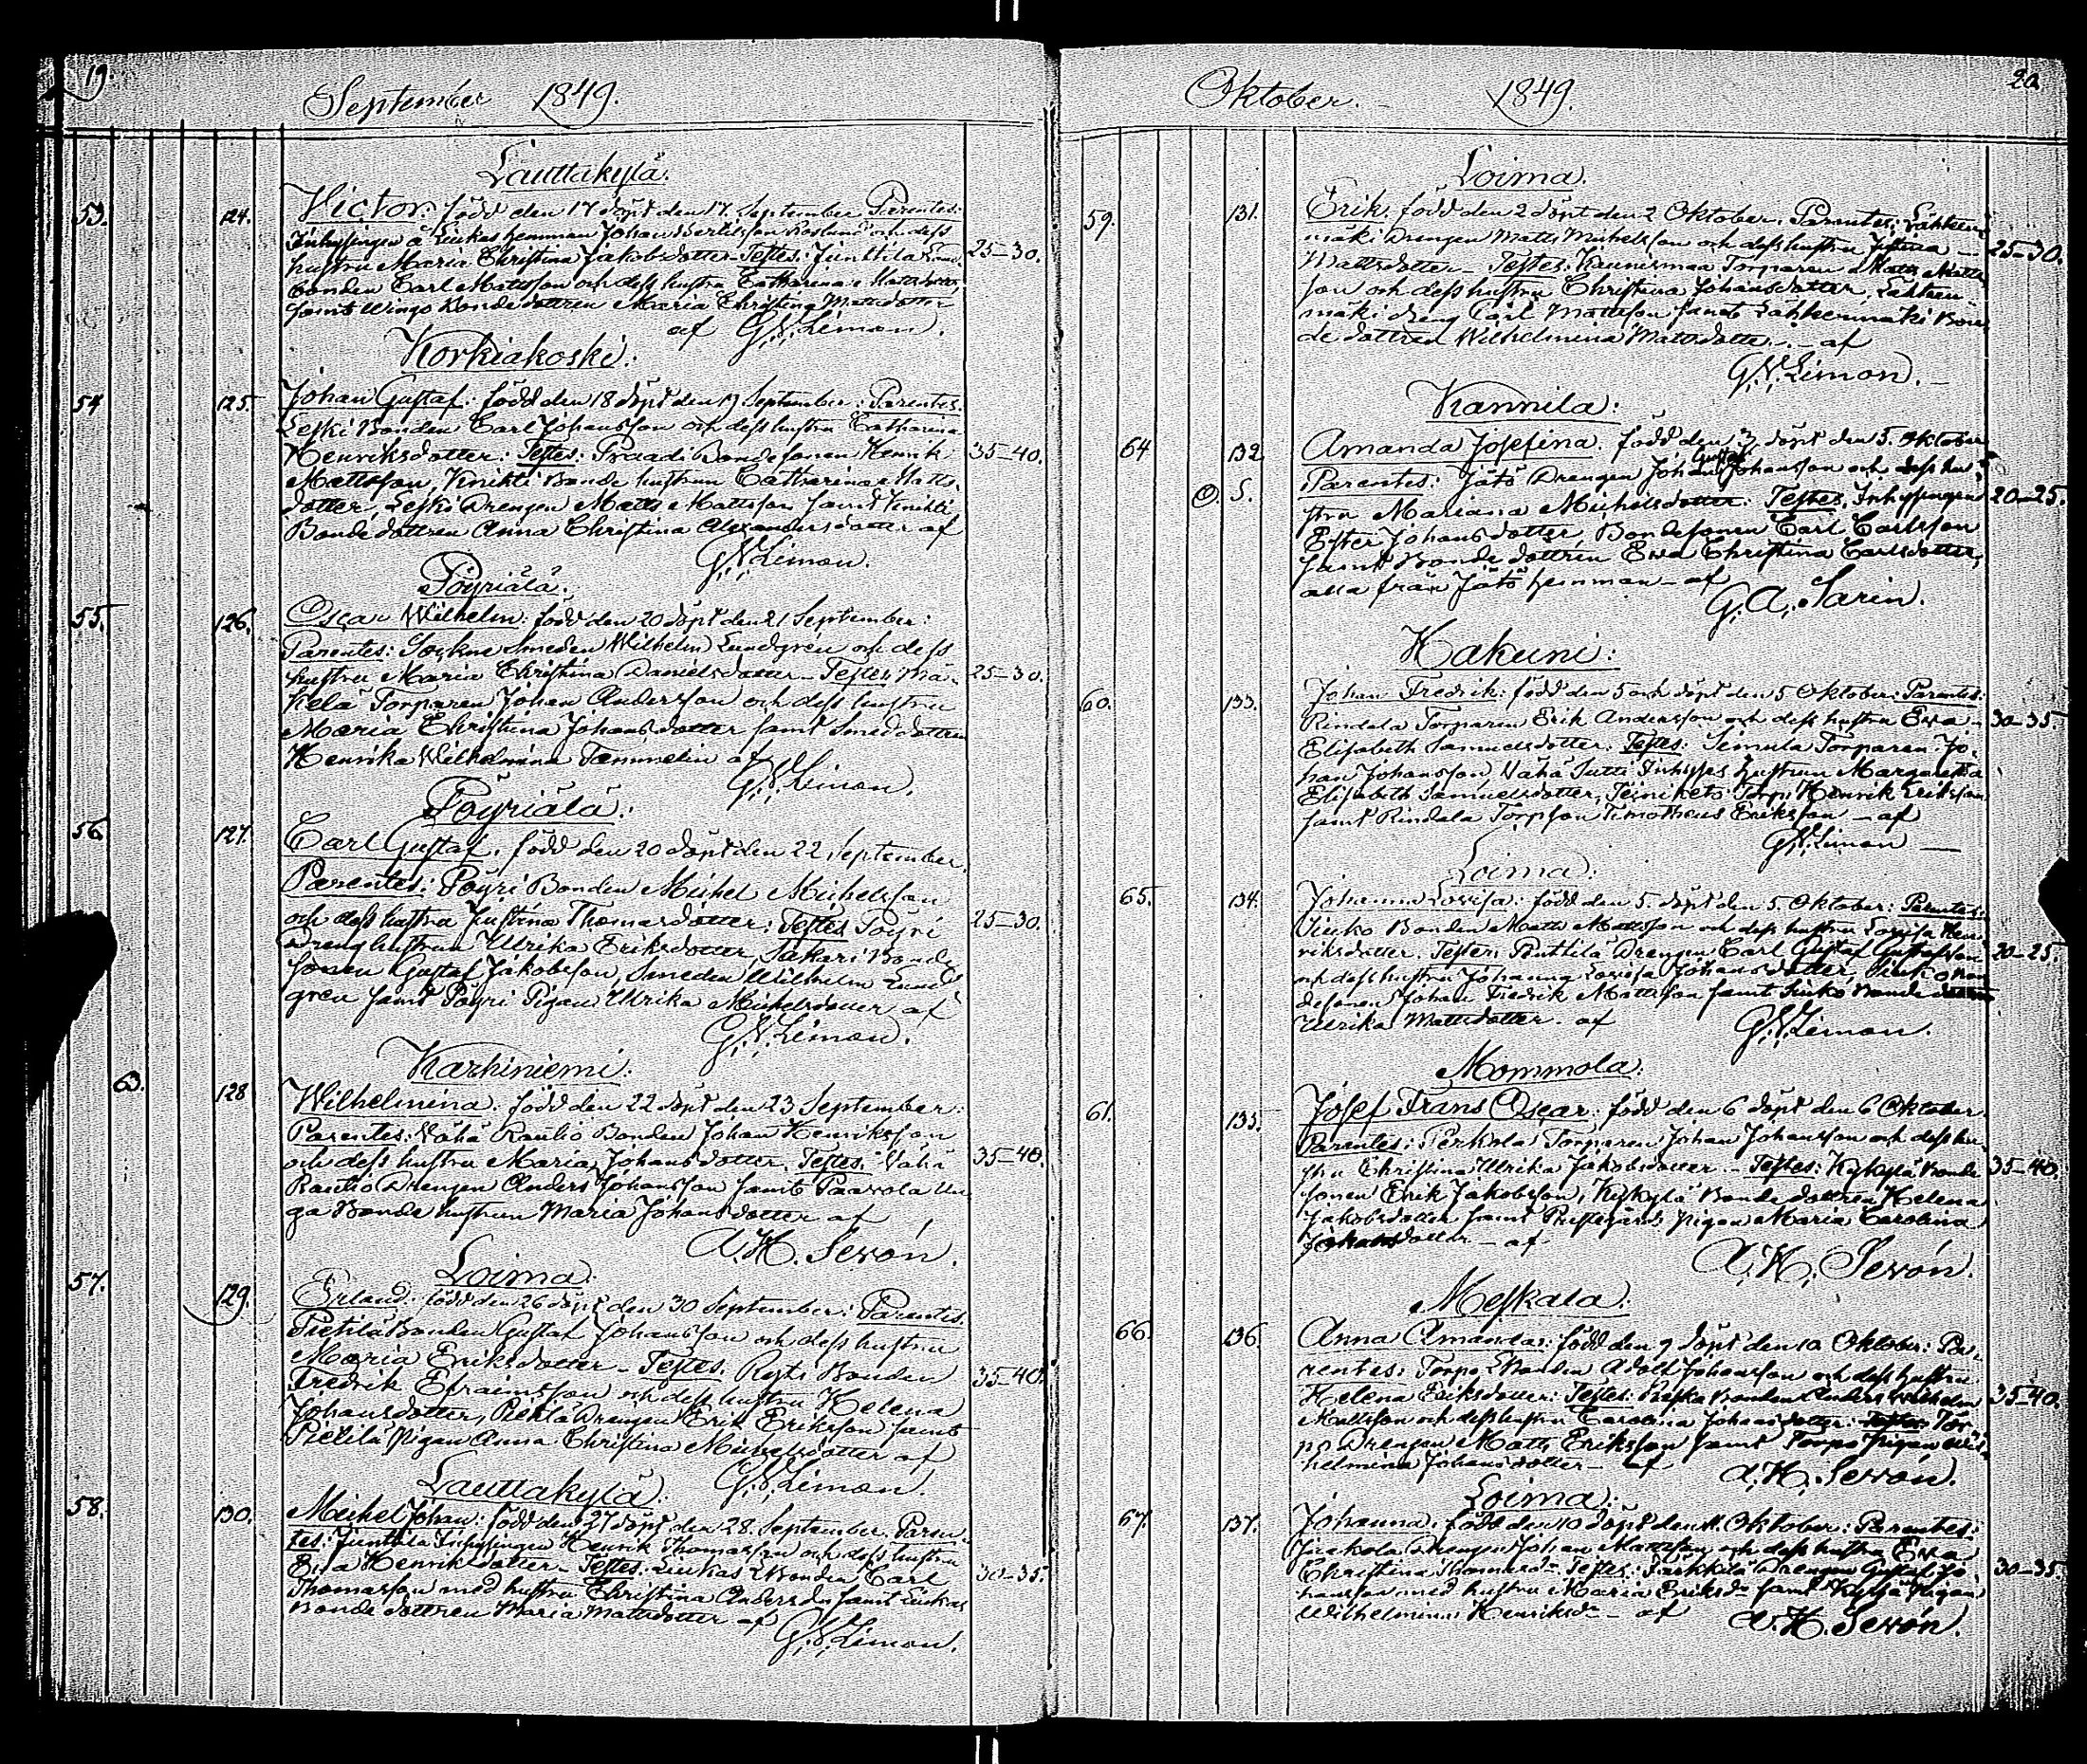 19.
September 1849.
Lauttakylä.
53. 124. Victor: född den 17 döpt den 17. September Parentes:
Inhysingen å Liukas hemman Johan Bertilsson Roslund och dess
hustru Maria Christina Jakobsdotter Testes: Junttila 25-30.
bonden Carl Mattsson och dess hustru Catharina Mattsdotter,
samt Wingo Bondedottren Maria Christina Mattsdotter
af G.N. Limon.
Korkiakoski:
54 125. Johan Gustaf: född den 18 döpt den 19 September: Parentes.
Leski Bonden Carl Johansson och dess hustru Catharina
Henriksdotter: Testes: Praadi Bondesonen Henrik 35-40.
Mattsson, Knihti Bonde hustrun Catharina Matts
dotter, Leski Drengen Matts Mattsson samt Knihti
Bonde dottren Anna Christina Alexandersdotter af
G.N. Limon.
Pöyriälä:
55. 126. Oscar Wilhelm: född den 20 döpt den 21 September:
Parentes: Sockne Smeden Wilhelm Lundgrén och dess
hustru Maria Christina Danielsdotter - Testes Mä- 25-30.
kelä Torparen Johan Andersson och dess hustru
Maria Christina Johansdotter samt Smeddottren
Henrika Wilhelmina Tammelin af
G.N. Limon.
Pöyriälä:
56 127. Carl Gustaf. född den 20 döpt den 22 September.
Parentes: Pöyri Bonden Michel Michelsson
och dess hustru Justina Thomasdotter: Testes Pöyri 25-30.
Dreng hustrun Ulrika Eriksdotter, Sakari Bonde
sonen Gustaf Jakobsson, Smeden Wilhelm Lund
gren samt Pöyri Pigan Ulrika Michelsdotter af
G.N. Limon.
Karhiniemi:
63. 128 Wilhelmina: född den 22 döpt den 23 September:
Parentes: Vähä Raulio Bonden Johan Henriksson
och dess hustru Maria Johansdotter. Testes: Vähä 35-40.
Raulio Drengen Anders Johansson samt Paavola Un
ga Bonde hustrun Maria Johansdotter af
A.H. Sevón.
Loima:
57. 129. Erland: född den 26 döpt den 30 September: Parentes.
Pietilä Bonden Gustaf Johansson och dess hustru
Maria Eriksdotter - Testes. Bonden 35-40.
Fredrik Efraimsson och dess hustru Helena
Johansdotter, Pietilä Drengen Erik Eriksson samt
Pietilä Pigan Anna Christina Michelsdotter af
G.N. Limon.
Lauttakylä:
58. 130. Michel Johan: född den 27 döpt den 28. September. Paren-
tes: Junttila Inhysingen Henrik Thomasson och dess hustru
Eva Henriksdotter - Testes: Liukas Bonden Carl 30-35.
Thomasson med hustru Christina Andersdr samt Liukas
Bonde dottren Maria Mattsdotter af
G.N. Limon.
20
Oktober. - 1849.
Loima.
59. 131. Erik. född den 2 döpt den 2 Oktober. Parentes; Lähteen
mäki Drengen Matts Michelsson och dess hustru Justina 25-30.
Mattsdotter - Testes: Kaunismaa Torparen Matts Matts
son och dess hustru Christina Johansdotter, Lähteen-
mäki dreng Carl Mattsson samt Lähteenmäki Bon
de dottren Wilhelmina Mattsdotter. - af
G.N. Limon. -
Kannila:
64 132 Amanda Josefina. född den 3. döpt den 5. Oktober
O. 5. Parentes: Jätö Drengen Johan Gustaf Johansson och dess hu
stru Mariana Michelsdotter: Testes. Inhysingen 20-25.
Ester Johansdotter, Bondesonen Carl Carlsson
samt Bonde dottren Eva Christina Carlsdotter,
alla från Jätö hemman - af
G.A. Sarin.
Hakuni:
60. 133. Johan Fredrik: född den 5 och döpt den 5 Oktober: Parentes:
Rindala Torparen Erik Andersson och dess hustru Eva - 30-35
Elisabeth Samuelsdotter: Testes: Seimula Torparen Jo-
han Johansson, Vähä Sutti Inhyses hustrun Margaretha
Elisabeth Samuelsdotter, Torp. Henrik Eriksson
samt Rindala Torpson Timotheus Eriksson - af
G.N. Limon -
Loima:
65. 134. Johanna Lovisa: född den 5. döpt den 5. Oktober: Parentes:
Bonden Matts Mattsson och dess hustru Lovisa Hen
riksdotter. Testes: Penttilä Drengen Carl Gustaf Gustafsson 20-25.
och dess hustru Johanna Lovisa Johansdotter, Bon
desonen Johan Fredrik Mattsson samt Bonde dottren
Ulrika Mattsdotter. af G.N. Limon.
Mommola:
61. 135. Josef Frans Oscar: född den 6 döpt den 6 Oktober.
Parentes: Perkola Torparen Johan Johansson och dess hu
stru Christina Ulrika Jakobsdotter - Testes: Kykylä Bonde 35-40.
sonen Erik Jakobsson, Kykylä Bonde dottren Helena
Jakobsdotter samt Prestegårds Pigan Maria Carolina
Johansdotter - af
A.H. Sevón.
Meskala:
66. 136. Anna Amanda: född den 9 döpt den 10 Oktober: Pa-
rentes: Torpo Bonden Adolf Johansson och dess hustru
Helena Eriksdotter: Testes: Bonden Anders Wilhelm 35-40.
Mattsson och dess hustru Carolina Johansdotter. Tor
po Drengen Matts Eriksson samt Torpo Pigan Wil-
helmina Johansdotter - af A.H. Sevón.
Loima:
67. 137. Johanna: född den 10 döpt den 11. Oktober: Parentes:
Jaakola Drengen Johan Mattsson och dess hustru Eva
Christina Thomasdr Testes: Drengen Gustaf Jo- 30-35.
hansson med hustru Maria Eriksdr samt Pigan
Wilhelmina Henriksdr - af A.H. Sevón.